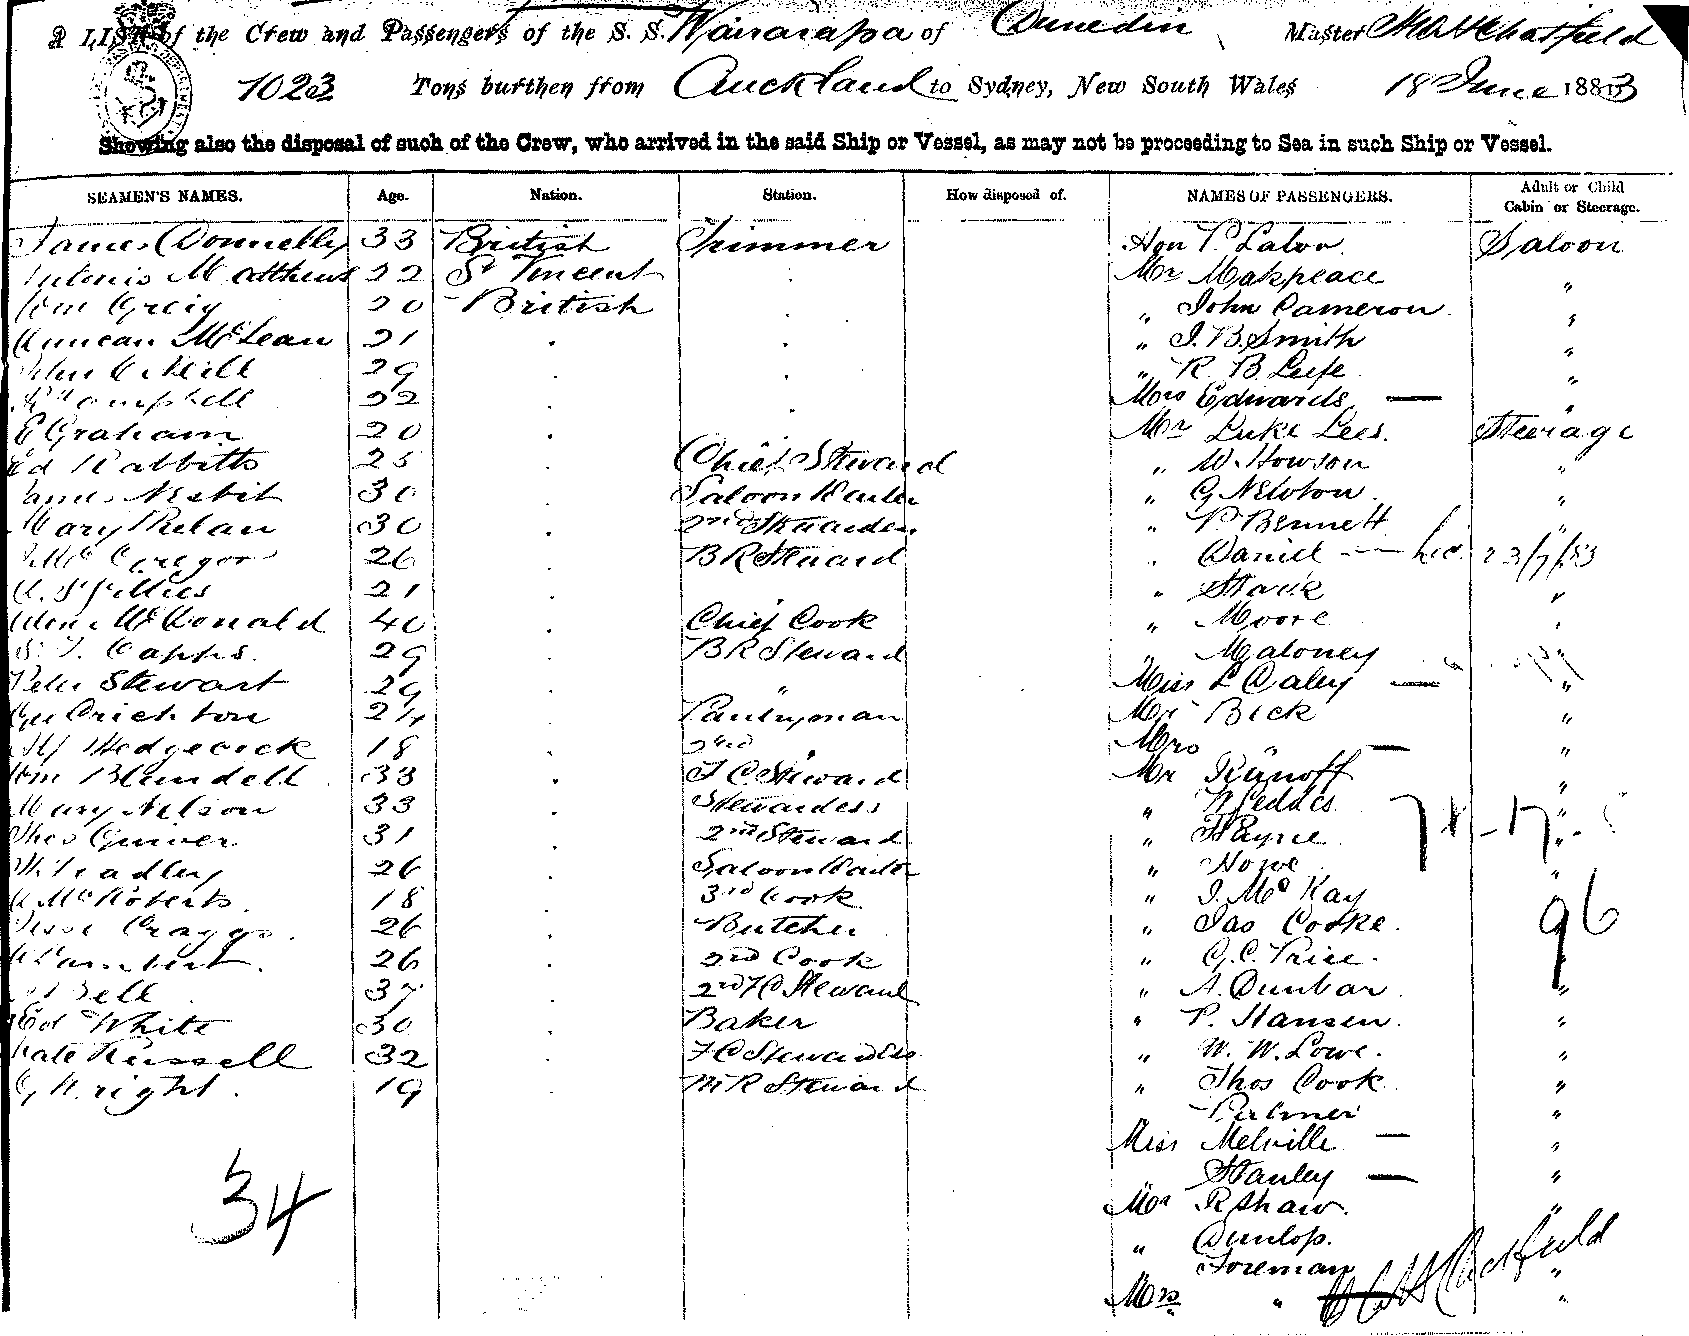 A LIST of the Crew and Passengers of the S. S. Wairarapa of Dunedin Master Chatfield
1023 Tons burthen from Auckland to Sydney, New South Wales 18 June 1883
Showing also the disposal of such of the Crew, who arrived in the said Ship or Vessel, as may not be proceeding to Sea in such Ship or Vessel.
SEAMEN'S NAMES. Age. Nation. Station. How disposed of. NAMES OF PASSENGERS. Adult or Child Cabin or Steerage.
James Donnelly 33 British Trimmer Hon P. Saloon
Antonio Matthews 22 St Vincent . Mr Makpeace "
Wm Greig 20 British . " John Cameron "
Duncan McLean 21 . . " J. B. Smith "
John O'Neill 29 . . " R. B. Leefe "
Campbell 22 . . Mrs Edwards — "
E Graham 20 . . Mr Luke Lees. Steerage
Ed Rabbitts 25 . Chief Steward " W. Howson "
James Nesbit 30 . Saloon Waiter " G Newton "
Mary Phelan 30 . 2nd Stewardess " P. Bennett "
McGregor 26 . B R Steward . Daniel — 23/7/83
Gillies 21 . " " Stack "
McDonald 40 . Chief Cook " Moore "
Capps. 29 . B R Steward " Maloney "
Peter Stewart 29 . " Miss L Daley — "
Crichton 24 . Pantryman Mr Beck "
Alf Hedgecock 18 . 2nd " Mrs " — "
Wm Blundell 33 . F C Steward Mr "
Mary Nelson 33 . Stewardess " Geddes "
Thos Guiver 31 . 2nd Steward " Hayne "
26 . Saloon Waiter " Howe "
McRoberts. 18 . 3rd Cook " J. McKay
Jesse Craggs. 26 . Butcher " Jas Cooke. 96
Lambert. 26 . 2nd Cook " G. C. Price.
Bell 37 . 2nd F C Steward " A. Dunbar "
Ed White 30 . Baker " P. Hansen. "
Kate Russell 32 . F C Stewardess " W. W. Lowe. "
G Wright. 19 . M R Steward " Thos Cook "
Palmer "
Miss Melville — "
Stanley — "
34 Mr R Shaw. "
" Dunlop.
Foreman
Mrs " Chatfield "